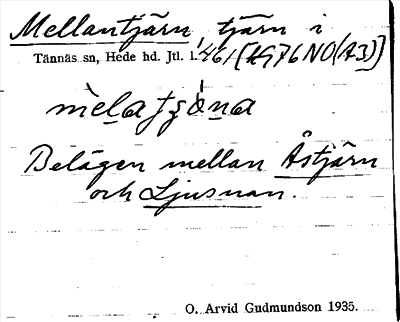 Mellantjärn, tjärn i
Tännäs sn, Hede hd. Jtl. l. 461 [A976 NO(A3)]
mèlatʒä̀na
Belägen mellan Åstjärn
och Ljusnan.
O. Arvid Gudmundson 1935.